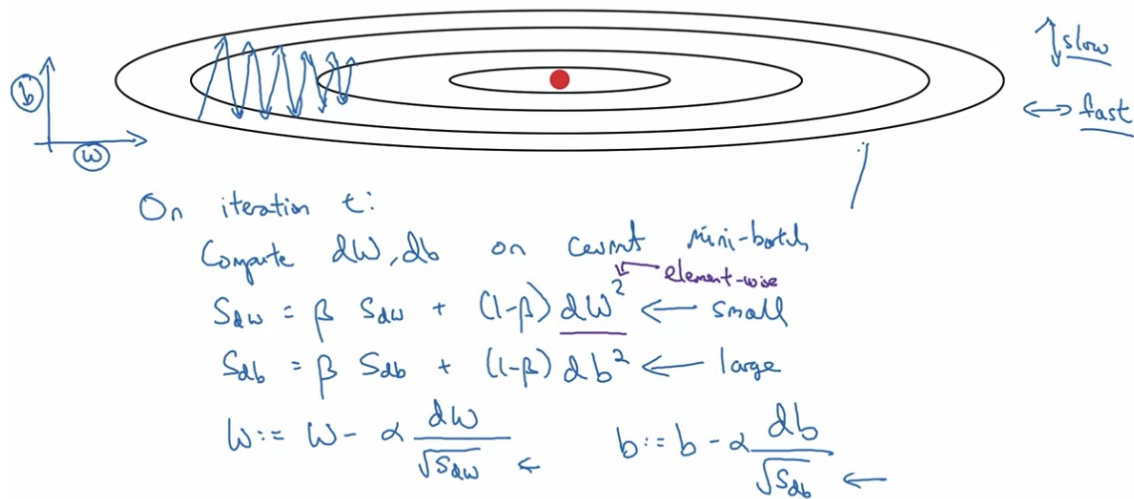 b
w
↕ slow
↔ fast
On iteration t:
Compute dW, db on current mini-batch
element-wise
S_dw = β S_dw + (1-β) dW² ← small
S_db = β S_db + (1-β) db² ← large
W := W - α dW/√S_dw ← b := b - α db/√S_db ←